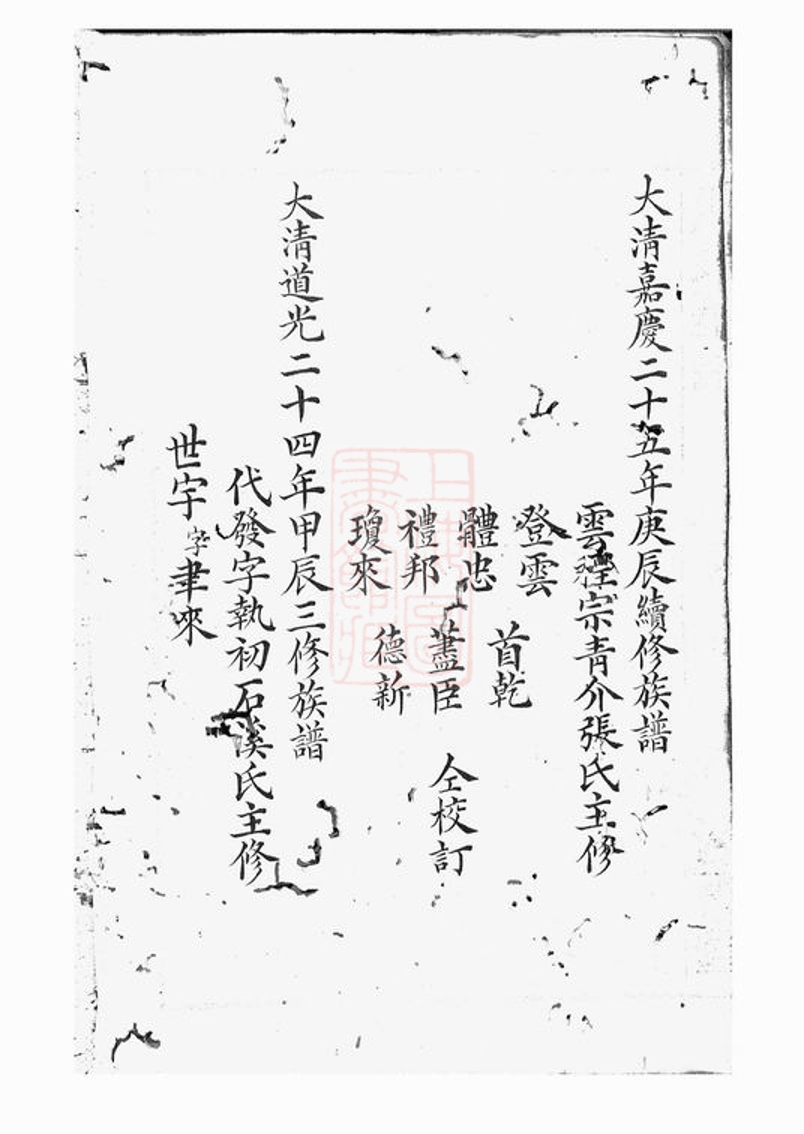 大清嘉慶二十五年庚辰續修族譜
雲 宗青介張氏主修
登雲
首乾
體忠
藎臣
禮邦
德新
瓊來
仝校訂
大清道光二十四年甲辰三修族譜
代發字執初石溪氏主修
世宇字聿來